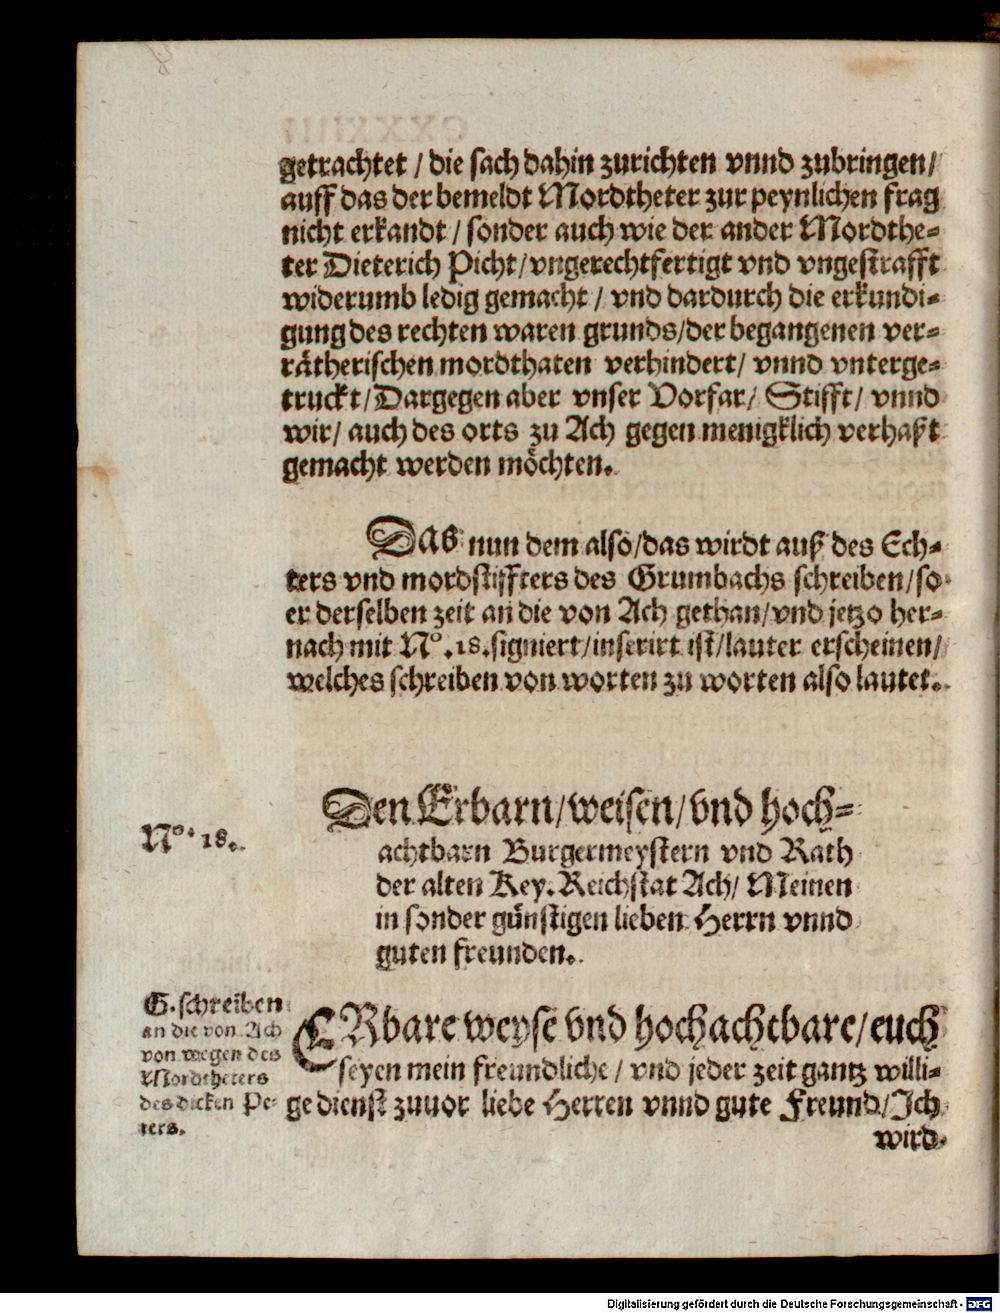 getrachtet / die sach dahin zurichten vnnd zubringen/
auff das der bemeldt Mordtheter zur peynlichen frag
nicht erkandt / sonder auch wie der ander Mordthe-
ter Dieterich Picht/vngerechtfertigt vnd vngestrafft
widerumb ledig gemacht / vnd dardurch die erkundi-
gung des rechten waren grunds/der begangenen ver-
rätherischen mordthaten verhindert/ vnnd vnterge-
truckt/Dargegen aber vnser Vorfar/ Stifft/ vnnd
wir/ auch des orts zu Ach gegen menigklich verhaßt
gemacht werden möchten.
Das nun dem also/das wirdt auß des Ech-
ters vnd mordstiffters des Grumbachs schreiben/so
er derselben zeit an die von Ach gethan/vnd jetzo her-
nach mit No.18.signiert/inserirt ist/lauter erscheinen/
welches schreiben von worten zu worten also lautet.
No. 18.
Den Erbarn/weisen/vnd hoch-
achtbarn Burgermeystern vnd Rath
der alten Key.Reichstat Ach/ Meinen
in sonder günstigen lieben Herrn vnnd
guten freunden.
G.schreiben
an die von Ach
von wegen des
Mordtheters
des dicken Pe-
ters.
ERbare weyse vnd hochachtbare/euch
seyen mein freundliche / vnd jeder zeit gantz willi-
ge dienst zuuor liebe Herren vnnd gute Freund/Ich
wird
Digitalisierung gefördert durch die Deutsche Forschungsgemeinschaft - DFG